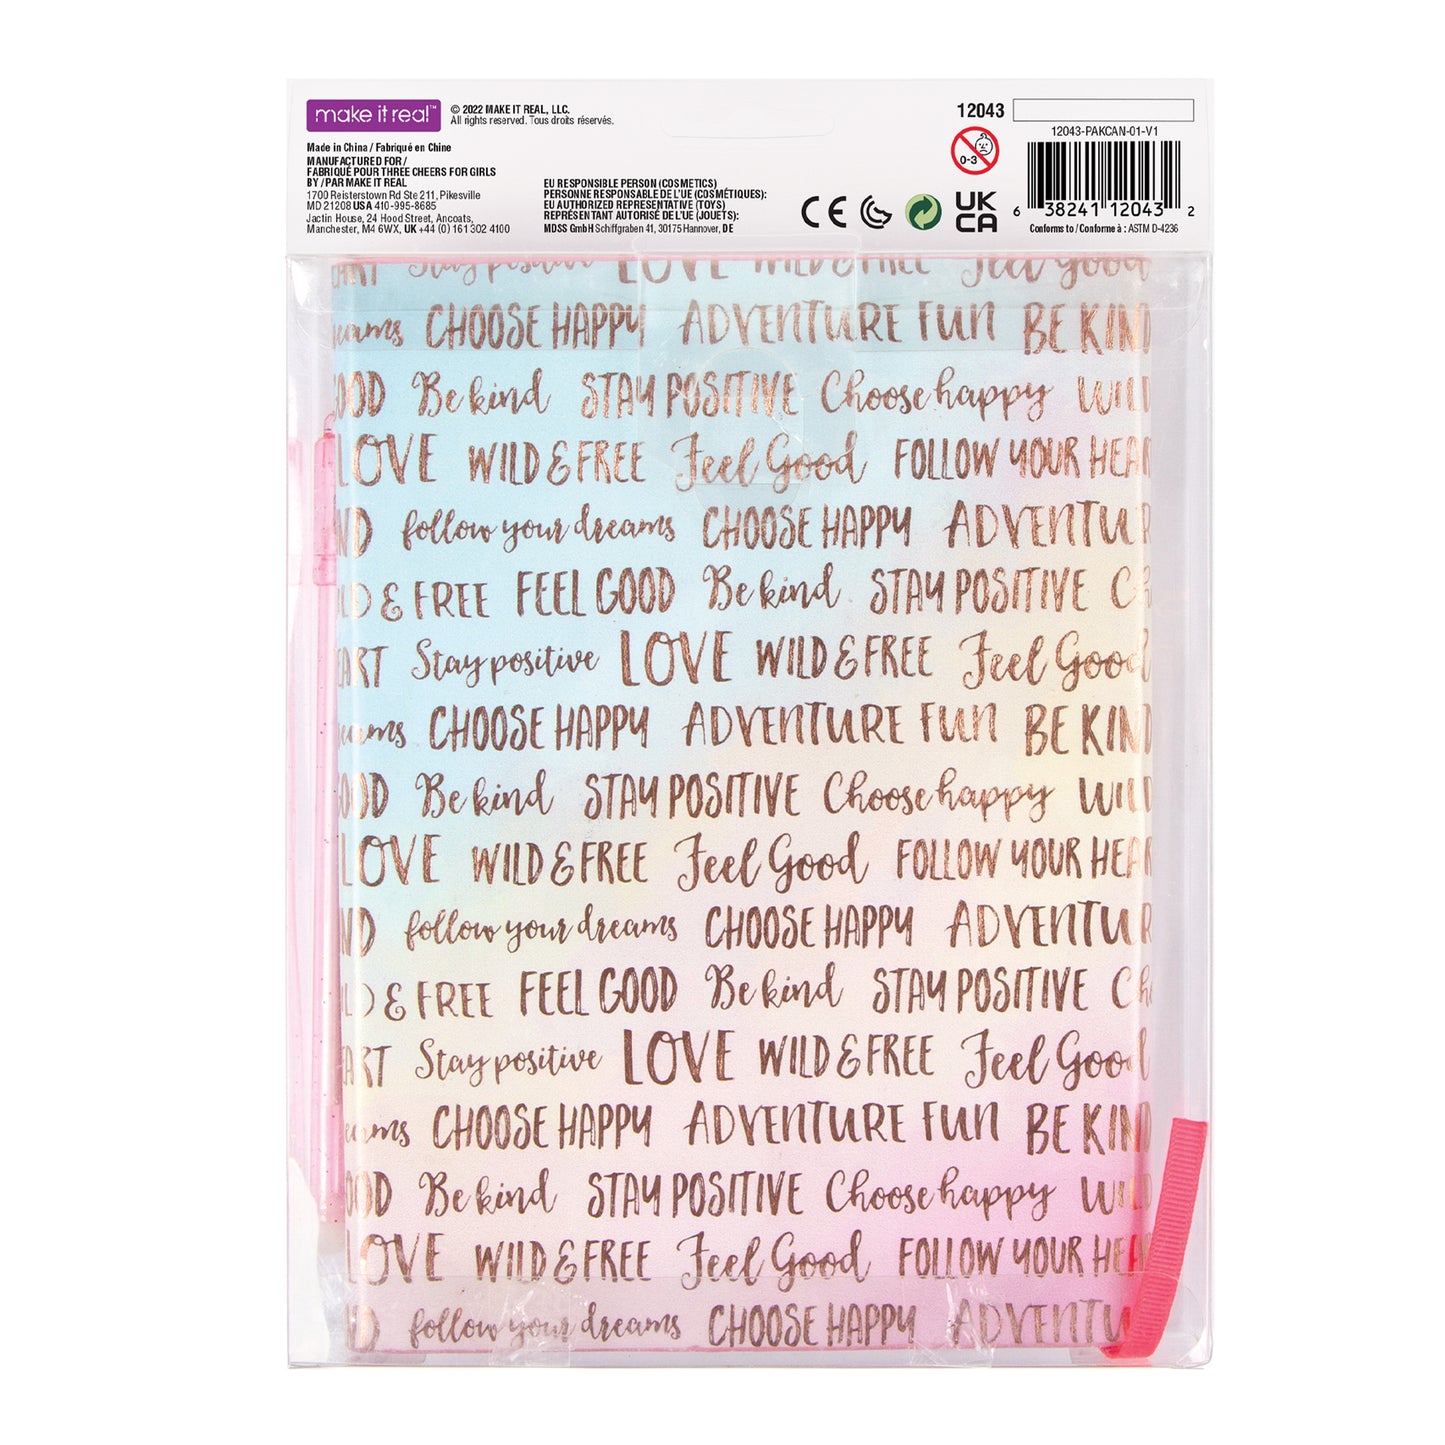 make it real™
© 2022 MAKE IT REAL, LLC.
All rights reserved. Tous droits réservés.
Made in China / Fabriqué en Chine
MANUFACTURED FOR /
FABRIQUÉ POUR THREE CHEERS FOR GIRLS
BY / PAR MAKE IT REAL
1700 Reisterstown Rd Ste 211, Pikesville
MD 21208 USA 410-995-8685
Jactin House, 24 Hood Street, Ancoats,
Manchester, M4 6WX, UK +44 (0) 161 302 4100
EU RESPONSIBLE PERSON (COSMETICS)
PERSONNE RESPONSABLE DE L'UE (COSMÉTIQUES):
EU AUTHORIZED REPRESENTATIVE (TOYS)
REPRÉSENTANT AUTORISÉ DE L'UE (JOUETS):
MDSS GmbH Schiffgraben 41, 30175 Hannover, DE
12043
0-3
CE
UK
CA
12043-PAKCAN-01-V1
6 38241 12043 2
Conforms to / Conforme à : ASTM D-4236
EART Stay positive LOVE WILD & FREE Feel good
reams CHOOSE HAPPY ADVENTURE FUN BE KIND
OOD Be kind STAY POSITIVE Choose happy WILD
LOVE WILD & FREE Feel Good FOLLOW YOUR HEAR
ND follow your dreams CHOOSE HAPPY ADVENTUR
LD & FREE FEEL GOOD Be kind STAY POSITIVE Ch
EART Stay positive LOVE WILD & FREE Feel Good
reams CHOOSE HAPPY ADVENTURE FUN BE KIND
OOD Be kind STAY POSITIVE Choose happy WILD
LOVE WILD & FREE Feel Good FOLLOW YOUR HEAR
ND follow your dreams CHOOSE HAPPY ADVENTUR
LD & FREE FEEL GOOD Be kind STAY POSITIVE Ch
EART Stay positive LOVE WILD & FREE Feel Good
reams CHOOSE HAPPY ADVENTURE FUN BE KIND
OOD Be kind STAY POSITIVE Choose happy WIL
LOVE WILD & FREE Feel Good FOLLOW YOUR HEA
ND follow your dreams CHOOSE HAPPY ADVENTU